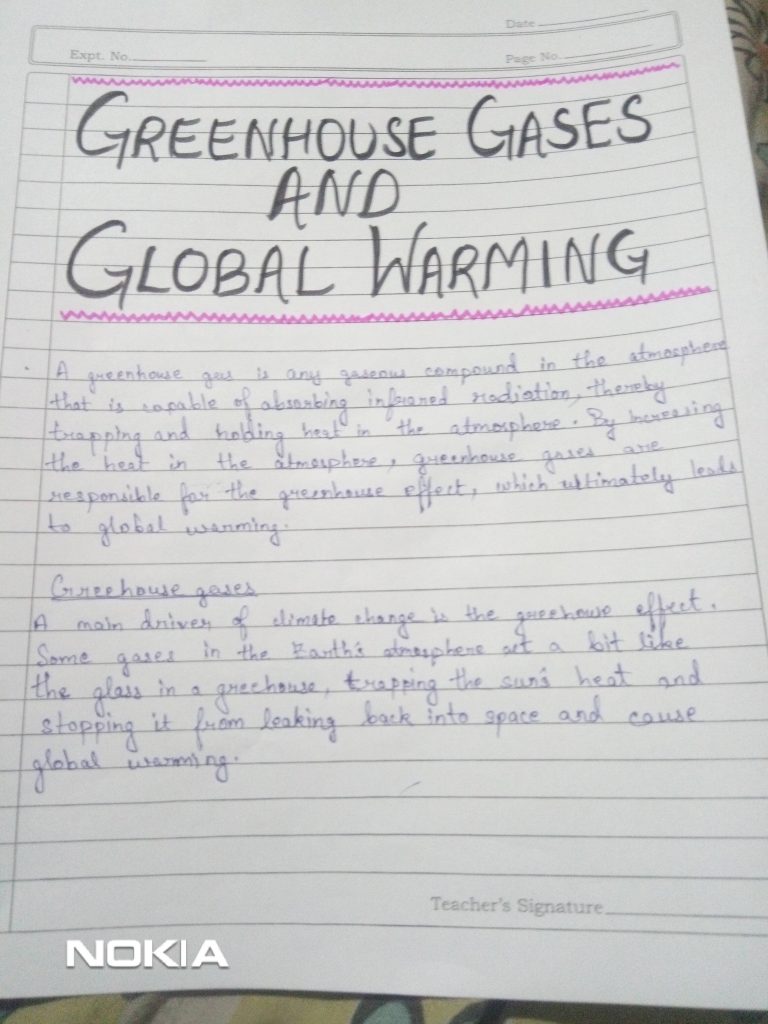 Date
Expt. No.
Page No.
GREENHOUSE GASES
AND
GLOBAL WARMING
A greenhouse gas is any gaseous compound in the atmosphere
that is capable of absorbing infrared radiation, thereby
trapping and holding heat in the atmosphere. By increasing
the heat in the atmosphere, greenhouse gases are
responsible for the greenhouse effect, which ultimately leads
to global warming.
Greehouse gases
A main driver of climate change is the greehouse effect.
Some gases in the Earth's atmosphere act a bit like
the glass in a greehouse, trapping the sun's heat and
stopping it from leaking back into space and cause
global warming.
Teacher's Signature
NOKIA